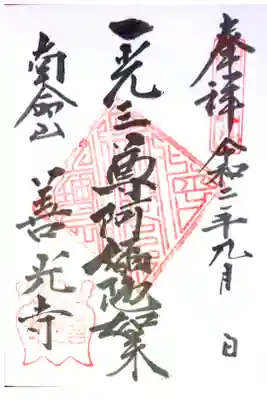 奉拝 令和二年九月 日
一光三尊阿弥陀如来
南命山
善光寺